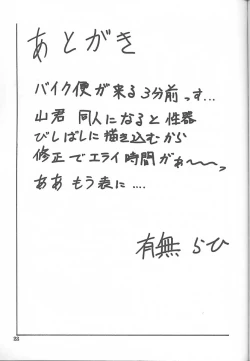 あとがき
バイク便が来る3分前っす...
山君 同人になると性器
びしばしに描き込むから
修正でエライ時間がぁ〜〜っ
ああ もう表に....
有無 らひ